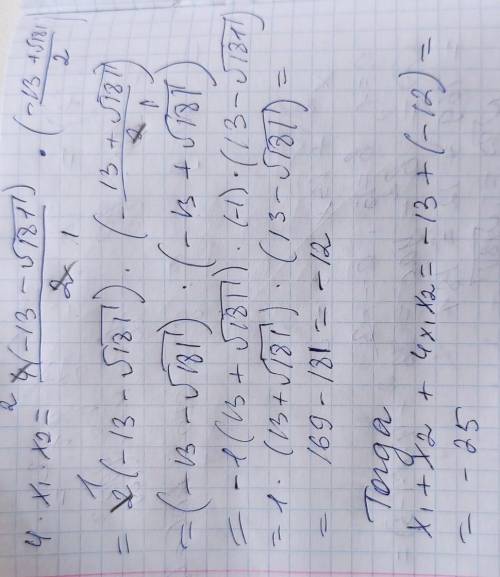 4 · x₁ · x₂ = 2 4(-13 - √181)/2 1 · (-13 + √181)/2
= 1 2(-13 - √181) · (-13 + √181)/2 1
= (-13 - √181) · (-13 + √181)
= -1(13 + √181) · (-1) · (13 - √181)
= 1 · (13 + √181) · (13 - √181) =
= 169 - 181 = -12
Тогда
x₁ + x₂ + 4x₁x₂ = -13 + (-12) =
= -25